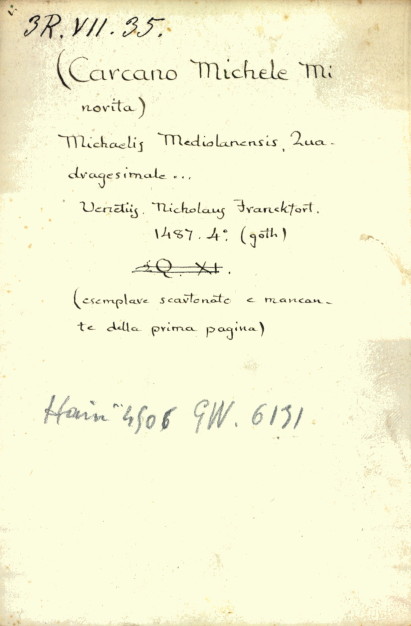 3R.VII.35.
(Carcano Michele Mi
novita)
Michaelis Mediolanensis, Qua-
dragesimale...
Venetiis. Nicholaus Franckfort.
1487. 4º. (goth)
3Q. XI.
(esemplare scartonato e mancan-
te della prima pagina)
Hain 4506 GW. 6131